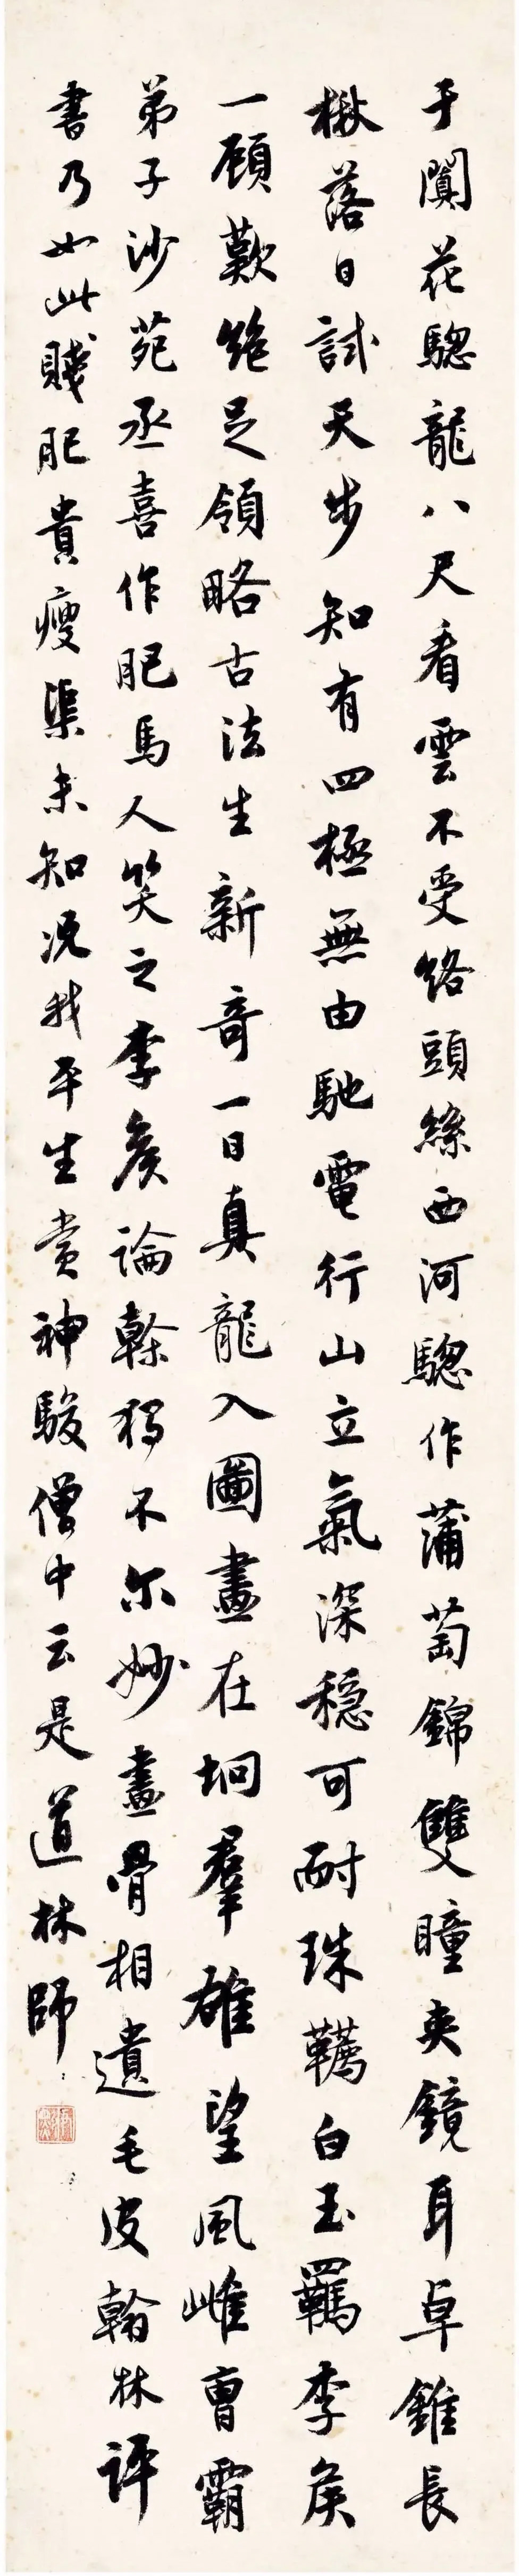 于闐花驄龍八尺看雲不受絡頭絲西河驄作蒲萄錦雙瞳夾鏡耳卓錐長
楸落日試天步知有四極無由馳電行山立氣深穩可耐珠韉白玉羈李侯
一顧歎絕足領略古法生新奇一日真龍入圖畫在坰羣雄望風雌曹霸
弟子沙苑丞喜作肥馬人笑之李侯論幹獨不尔妙畫骨相遺毛皮翰林評
書乃如此賤肥貴瘦渠未知況我平生賞神駿僧中云是道林師